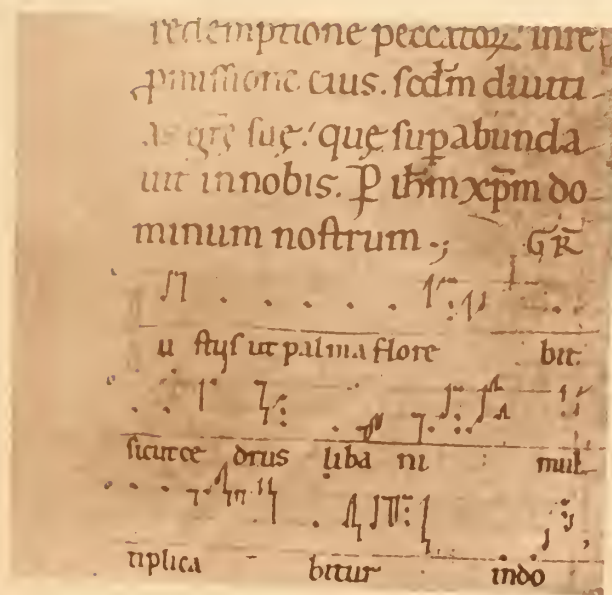 redemptione peccatoꝝ. inre
ꝑmissione eius. scdm̄ diuiti
as grē suę. quę sup̱abunda
uit innobis. ꝑ ihm̄ xp̄m do
minum nostrum.; GR̄
u stus ut palma flore bit.
sicut ce drus liba ni : mul
tiplica bitur indo